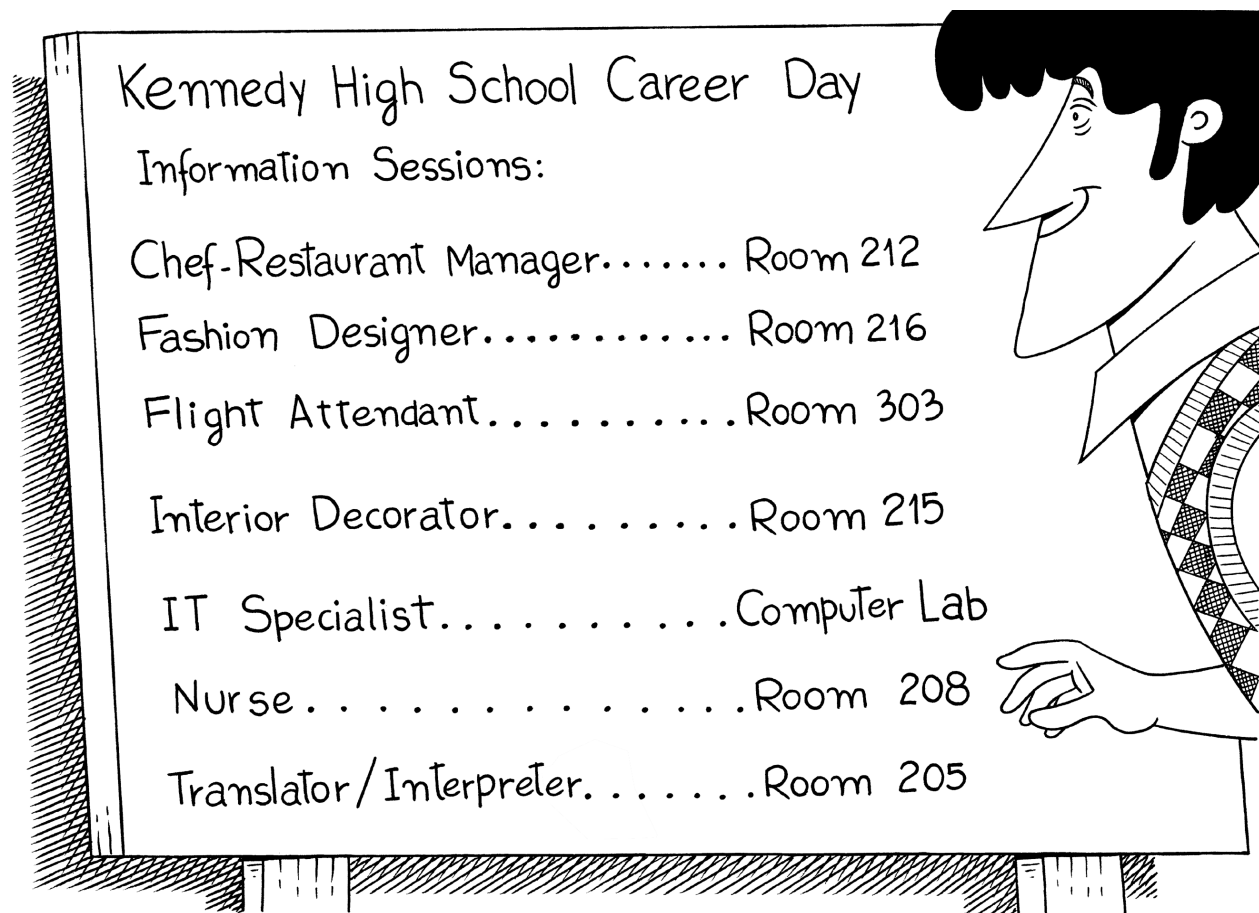 Kennedy High School Career Day
Information Sessions:
Chef-Restaurant Manager.......Room 212
Fashion Designer............Room 216
Flight Attendant..........Room 303
Interior Decorator.........Room 215
IT Specialist...........Computer Lab
Nurse..............Room 208
Translator/Interpreter.......Room 205